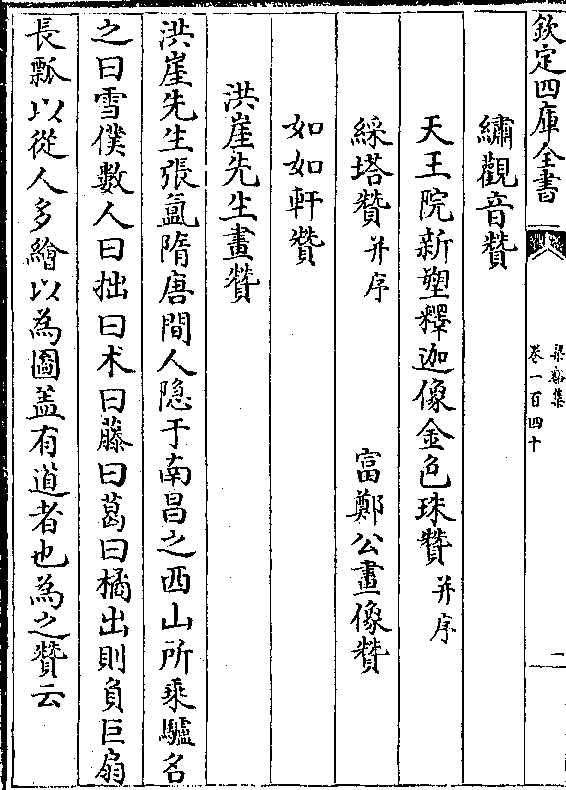 欽定四庫全書
梁谿集
卷一百四十
二
繡觀音贊
天王院新塑釋迦像金色珠贊并序
綵塔贊并序
富鄭公畫像贊
如如軒贊
洪崖先生畫贊
洪崖先生張氲隋唐間人隠于南昌之西山所乘驢名
之曰雪僕數人曰拙曰术曰藤曰葛曰橘出則負巨扇
長瓢以從人多繪以為圖盖有道者也為之贊云